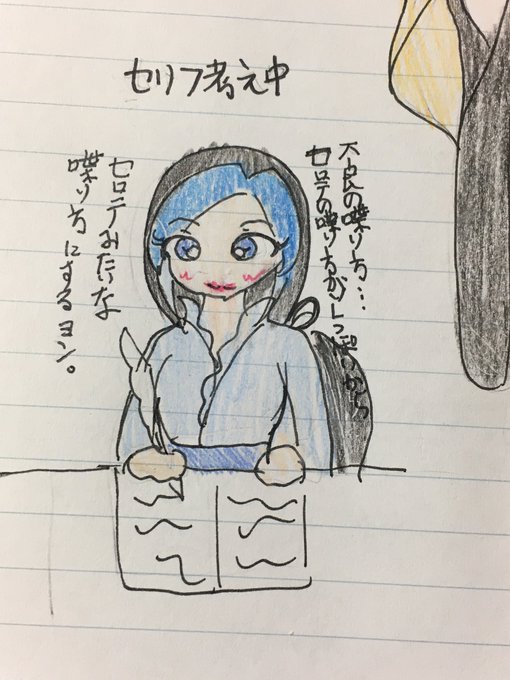 セリフ考え中
不良の喋り方…
セロテの喋り方がしっぽいから
セロテみたいな
喋り方にするヨン。